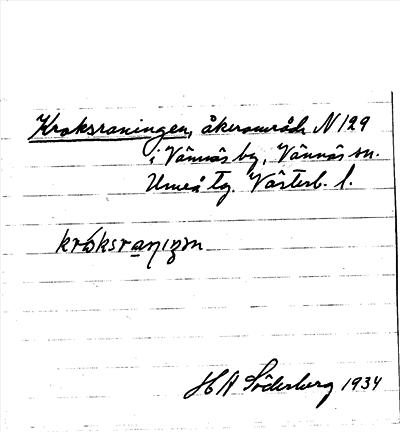 Kroksraningen, åkerområde N 129
i Vännäs by, Vännäs sn.
Umeå tg. Västerb. l.
HA Söderberg 1934